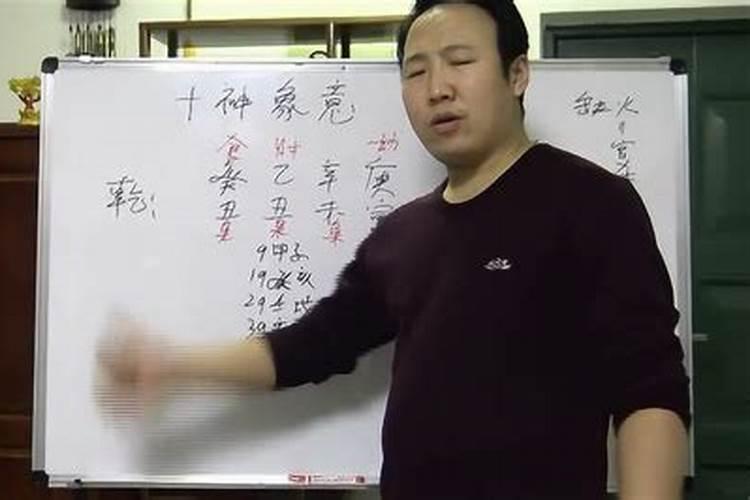 十神象意
食 财 一劫
乾： 癸 乙 辛 庚
丑 丑 未 寅
枭 枭 枭
9甲子
19癸亥
29壬戌
39
火
官杀